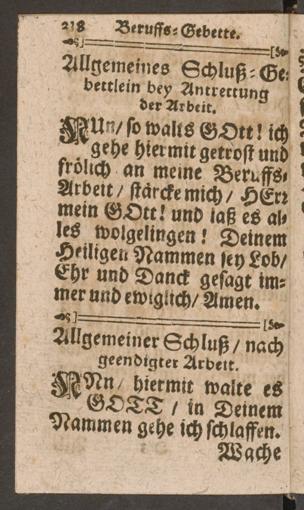 218 Beruffs-Gebette.
Allgemeines Schluß-Ge-
bettlein bey Antrettung
der Arbeit.
NUn/ so walts GOtt! ich
gehe hiermit getrost und
frölich an meine Beruffs-
Arbeit/ stärcke mich/ HErr
mein GOtt! und laß es al-
les wolgelingen! Deinem
Heiligen Nammen sey Lob/
Ehr und Danck gesagt im-
mer und ewiglich/ Amen.
Allgemeiner Schluß/ nach
geendigter Arbeit.
NUn/ hiermit walte es
GOTT/ in Deinem
Nammen gehe ich schlaffen.
Wache